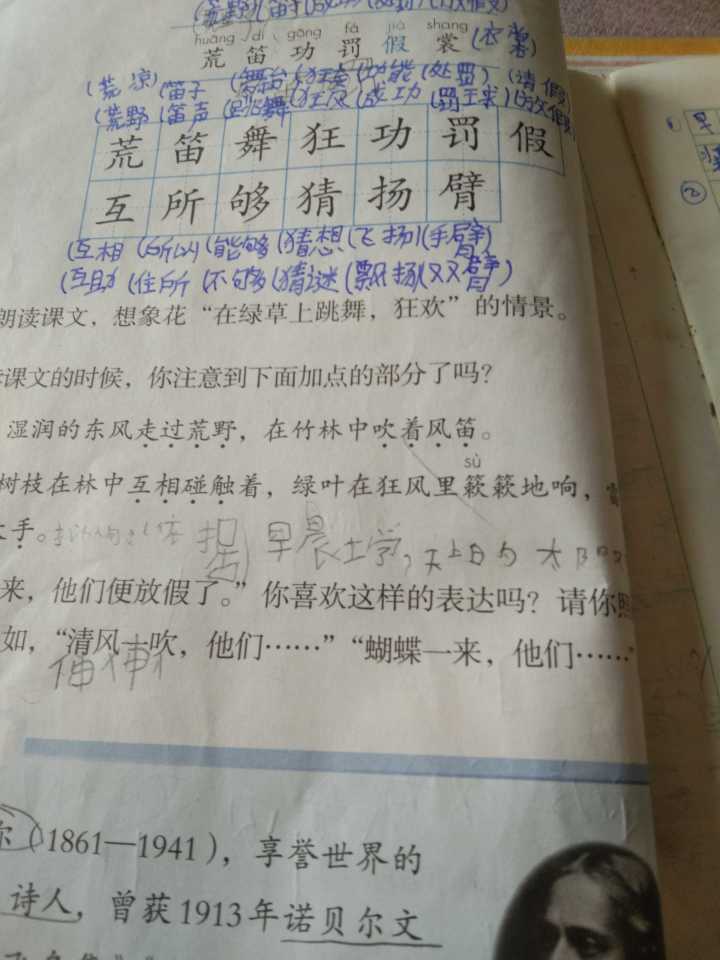 huāng dí gōng fá jià shang
荒 笛 功 罚 假 裳 (衣裳)
(荒凉) (笛子 (舞台) (狂 (功能 (处罚) (请假)
(荒野 (笛声 舞 (狂风 (成功 (罚 (放假
荒 笛 舞 狂 功 罚 假
互 所 够 猜 扬 臂
(互相 (所以 (能够 (猜想 (飞扬) (手臂)
(互助 (住所 (不够 (猜谜 (飘扬 (双臂)
朗读课文，想象花“在绿草上跳舞，狂欢”的情景。
课文的时候，你注意到下面加点的部分了吗？
湿润的东风走过荒野，在竹林中吹着风笛。
sù
树枝在林中互相碰触着，绿叶在狂风里簌簌地响，
手。
早晨上学，天上日 太阳
来，他们便放假了。”你喜欢这样的表达吗？请你照
如，“清风一吹，他们……”“蝴蝶一来，他们……”
尔(1861—1941)，享誉世界的
诗人，曾获1913年诺贝尔文